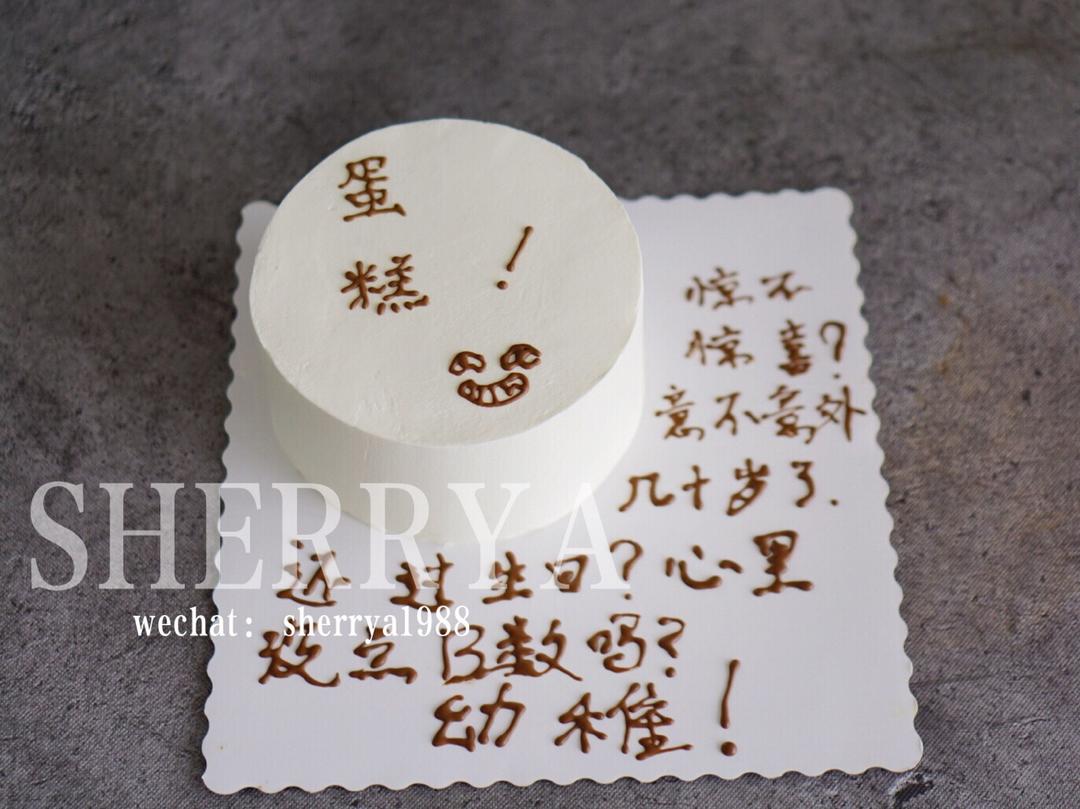 蛋
糕！
惊不
惊喜？
意不意外
几十岁了.
还过生日？心里
没点B数吗？
幼稚！
SHERRYA
wechat: sherrya1988